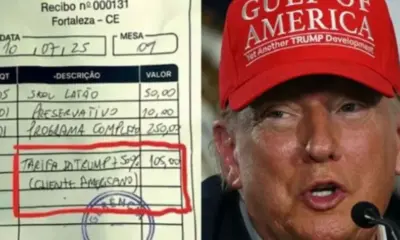 Recibo nº 000131
Fortaleza - CE
DATA
MESA
10 , 07, 25
01
QT
-DESCRIÇÃO-
VALOR
05 SKOL LATÃO 50,00
01 PRESERVATIVO 10,00
01 PROGRAMA COMPLETO 250,00
TARIFA DO TRUMP + 50% 105,00
(CLIENTE AMERICANO)
GULF OF
AMERICA
Yet Another TRUMP Development